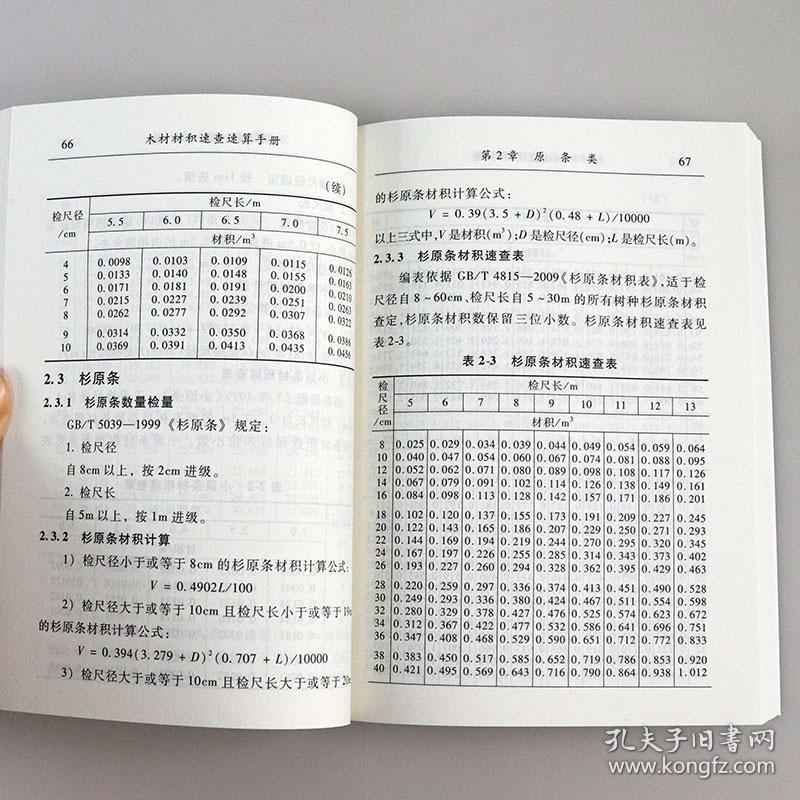 66 木材材积速查速算手册
(续)
检尺径 检尺长/m
/cm 5.5 6.0 6.5 7.0 7.5
材积/m³
4 0.0098 0.0103 0.0109 0.0115 0.0126
5 0.0133 0.0140 0.0148 0.0155 0.0163
6 0.0171 0.0181 0.0191 0.0200 0.0210
7 0.0215 0.0227 0.0239 0.0251 0.0263
8 0.0262 0.0277 0.0292 0.0307 0.0322
9 0.0314 0.0332 0.0350 0.0368 0.0386
10 0.0369 0.0391 0.0413 0.0435 0.0456
2.3 杉原条
2.3.1 杉原条数量检量
GB/T 5039—1999《杉原条》规定:
1. 检尺径
自8cm以上,按2cm进级。
2. 检尺长
自5m以上,按1m进级。
2.3.2 杉原条材积计算
1) 检尺径小于或等于8cm的杉原条材积计算公式:
V = 0.4902L/100
2) 检尺径大于或等于10cm且检尺长小于或等于19m
的杉原条材积计算公式:
V = 0.394(3.279 + D)²(0.707 + L)/10000
3) 检尺径大于或等于10cm且检尺长大于或等于20m
第2章 原条类 67
的杉原条材积计算公式:
V = 0.39(3.5 + D)²(0.48 + L)/10000
以上三式中,V是材积(m³);D是检尺径(cm);L是检尺长(m)。
2.3.3 杉原条材积速查表
编表依据GB/T 4815—2009《杉原条材积表》,适于检
尺径自8~60cm、检尺长自5~30m的所有树种杉原条材积
查定,杉原条材积数保留三位小数。杉原条材积速查表见
表2-3。
表2-3 杉原条材积速查表
检尺径/cm 检尺长/m
5 6 7 8 9 10 11 12 13
材积/m³
8 0.025 0.029 0.034 0.039 0.044 0.049 0.054 0.059 0.064
10 0.040 0.047 0.054 0.060 0.067 0.074 0.081 0.088 0.095
12 0.052 0.062 0.071 0.080 0.089 0.098 0.108 0.117 0.126
14 0.067 0.079 0.091 0.102 0.114 0.126 0.138 0.149 0.161
16 0.084 0.098 0.113 0.128 0.142 0.157 0.171 0.186 0.201
18 0.102 0.120 0.137 0.155 0.173 0.191 0.209 0.227 0.245
20 0.122 0.143 0.165 0.186 0.207 0.229 0.250 0.271 0.293
22 0.144 0.169 0.194 0.219 0.244 0.270 0.295 0.320 0.345
24 0.167 0.197 0.226 0.255 0.285 0.314 0.343 0.373 0.402
26 0.193 0.227 0.260 0.294 0.328 0.362 0.395 0.429 0.463
28 0.220 0.259 0.297 0.336 0.374 0.413 0.451 0.490 0.528
30 0.249 0.293 0.336 0.380 0.424 0.467 0.511 0.554 0.598
32 0.280 0.329 0.378 0.427 0.476 0.525 0.574 0.623 0.672
34 0.312 0.367 0.422 0.477 0.532 0.586 0.641 0.696 0.751
36 0.347 0.408 0.468 0.529 0.590 0.651 0.712 0.772 0.833
38 0.383 0.450 0.517 0.585 0.652 0.719 0.786 0.853 0.920
40 0.421 0.495 0.569 0.643 0.716 0.790 0.864 0.938 1.012
孔夫子旧书网
www.kongfz.com